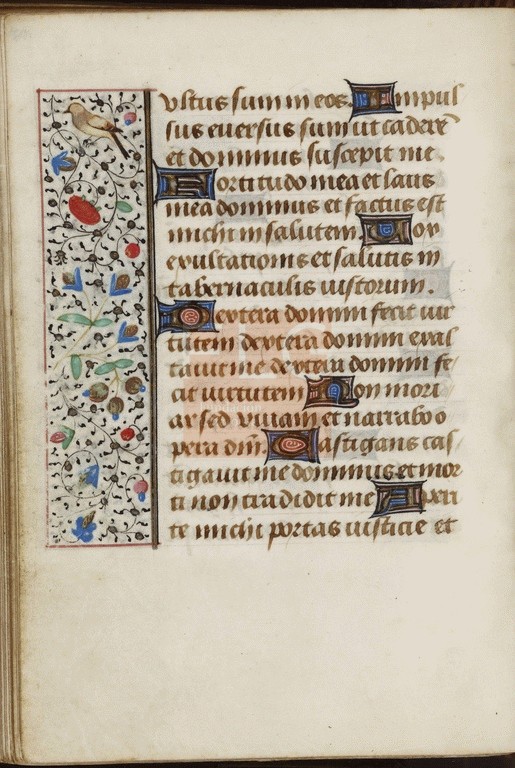 ultus sum in eos. Impul
sus eversus sum ut caderē
et dominus suscepit me.
Fortitudo mea et laus
mea dominus et factus est
michi in salutem. Vox
exultationis et salutis in
tabernaculis iustorum.
Dextera domini fecit vir
tutem dextera domini exal
tavit me dextera domini fe/
cit virtutem Non mori
ar sed vivam et narrabo o
pera dm̄. Castigans cas/
tigavit me dominus et mor
ti non tradidit me Aperi
te michi portas iusticie et